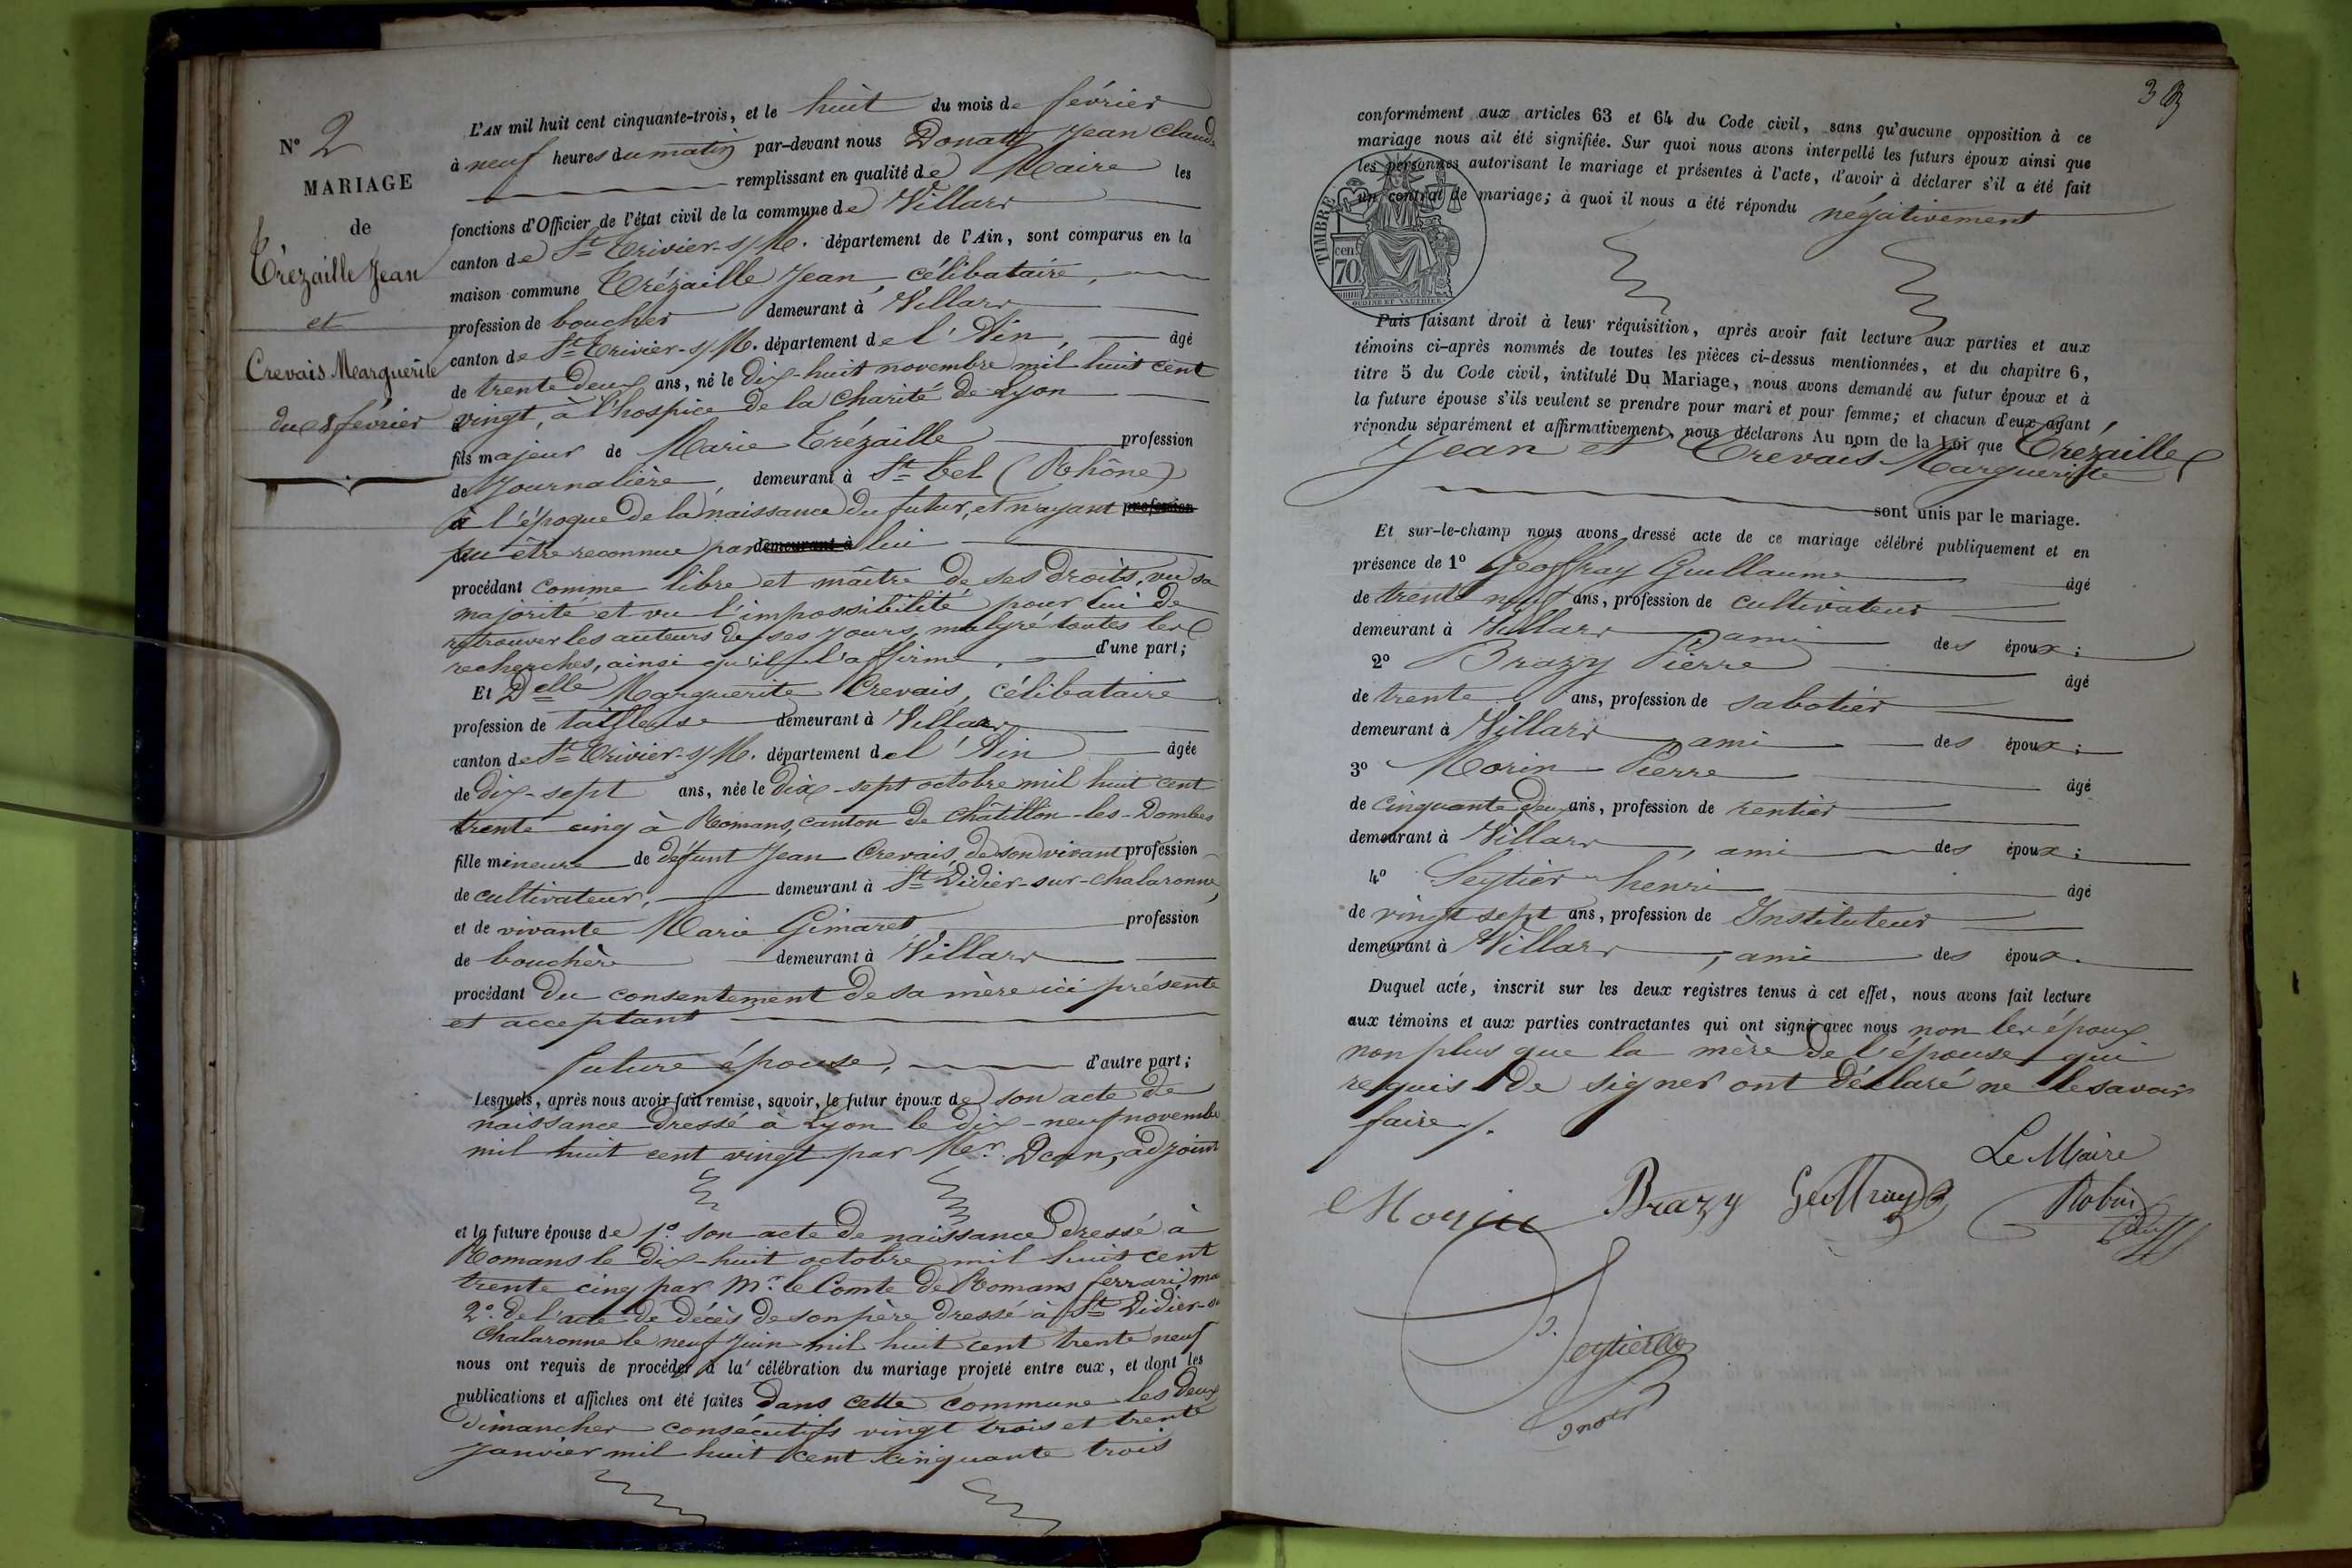 N° 2
MARIAGE
de
Trézaille Jean
et
Crevais Marguerite
du 8 février
L'AN mil huit cent cinquante-trois, et le huit du mois de février
à neuf heures du matin par-devant nous Donat Jean Claude
remplissant en qualité de Maire les
fonctions d'Officier de l'état civil de la commune de Villars
canton de St Trivier-s/M. département de l'Ain, sont comparus en la
maison commune Trézaille Jean, célibataire,
profession de boucher demeurant à Villars
canton de St Trivier-s/M. département de l'Ain, âgé
de trente deux ans, né le dix-huit novembre mil huit cent
vingt, à l'hospice de la charité de Lyon
fils majeur de Marie Trézaille profession
de journalière, demeurant à St bel (Rhône)
à l'époque de la naissance du futur, et n'ayant profession
pu être reconnue par demeurant à lui
procédant comme libre et maître de ses droits, vu sa
majorité et vu l'impossibilité pour lui de
retrouver les auteurs de ses jours, malgré toutes les
recherches, ainsi qu'il l'affirme, d'une part;
Et Delle Marguerite Crevais, célibataire
profession de tailleuse demeurant à Villars
canton de St Trivier-s/M. département de l'Ain âgée
de dix-sept ans, née le dix-sept octobre mil huit cent
trente cinq à Romans, canton de Châtillon-les-Dombes
fille mineure de défunt Jean Crevais, de son vivant profession
de cultivateur, demeurant à St Didier-sur-Chalaronne,
et de vivante Marie Gimaret profession
de bouchère demeurant à Villars
procédant du consentement de sa mère ici présente
et acceptant
future épouse, d'autre part;
Lesquels, après nous avoir fait remise, savoir, le futur époux de son acte de
naissance dressé à Lyon le dix-neuf novembre
mil huit cent vingt par Mr. adjoint
et la future épouse de 1° son acte de naissance dressé à
Romans le dix-huit octobre mil huit cent
trente cinq par Mr. le Comte de Romans ferrari, ma
2° de l'acte de décès de son père dressé à St Didier-s
Chalaronne le neuf Juin mil huit cent trente neuf
nous ont requis de procéder à la célébration du mariage projeté entre eux, et dont les
publications et affiches ont été faites dans cette commune les deux
dimanches consécutifs vingt trois et trente
janvier mil huit cent cinquante trois
conformément aux articles 63 et 64 du Code civil, sans qu'aucune opposition à ce
mariage nous ait été signifiée. Sur quoi nous avons interpellé les futurs époux ainsi que
les personnes autorisant le mariage et présentes à l'acte, d'avoir à déclarer s'il a été fait
un contrat de mariage; à quoi il nous a été répondu négativement
TIMBRE
cen.
70
OUDINE ET VAUTHIER
Puis faisant droit à leur réquisition, après avoir fait lecture aux parties et aux
témoins ci-après nommés de toutes les pièces ci-dessus mentionnées, et du chapitre 6,
titre 5 du Code civil, intitulé Du Mariage, nous avons demandé au futur époux et à
la future épouse s'ils veulent se prendre pour mari et pour femme; et chacun d'eux ayant
répondu séparément et affirmativement, nous déclarons Au nom de la Loi que Trézaille
Jean et Crevais Marguerite
sont unis par le mariage.
Et sur-le-champ nous avons dressé acte de ce mariage célébré publiquement et en
présence de 1° Geoffray Guillaume âgé
de trente neuf ans, profession de cultivateur
demeurant à Villars ami des époux;
2° Brazy Pierre âgé
de trente ans, profession de sabotier
demeurant à Villars ami des époux;
3° Morin Pierre âgé
de cinquante deux ans, profession de rentier
demeurant à Villars, ami des époux;
4° Seytier henri âgé
de vingt sept ans, profession de Instituteur
demeurant à Villars, ami des époux.
Duquel acte, inscrit sur les deux registres tenus à cet effet, nous avons fait lecture
aux témoins et aux parties contractantes qui ont signé avec nous non les époux
non plus que la mère de l'épouse qui
requis de signer ont déclaré ne le savoir
faire /.
Le Maire
Morin Brazy Geoffray
Seytier